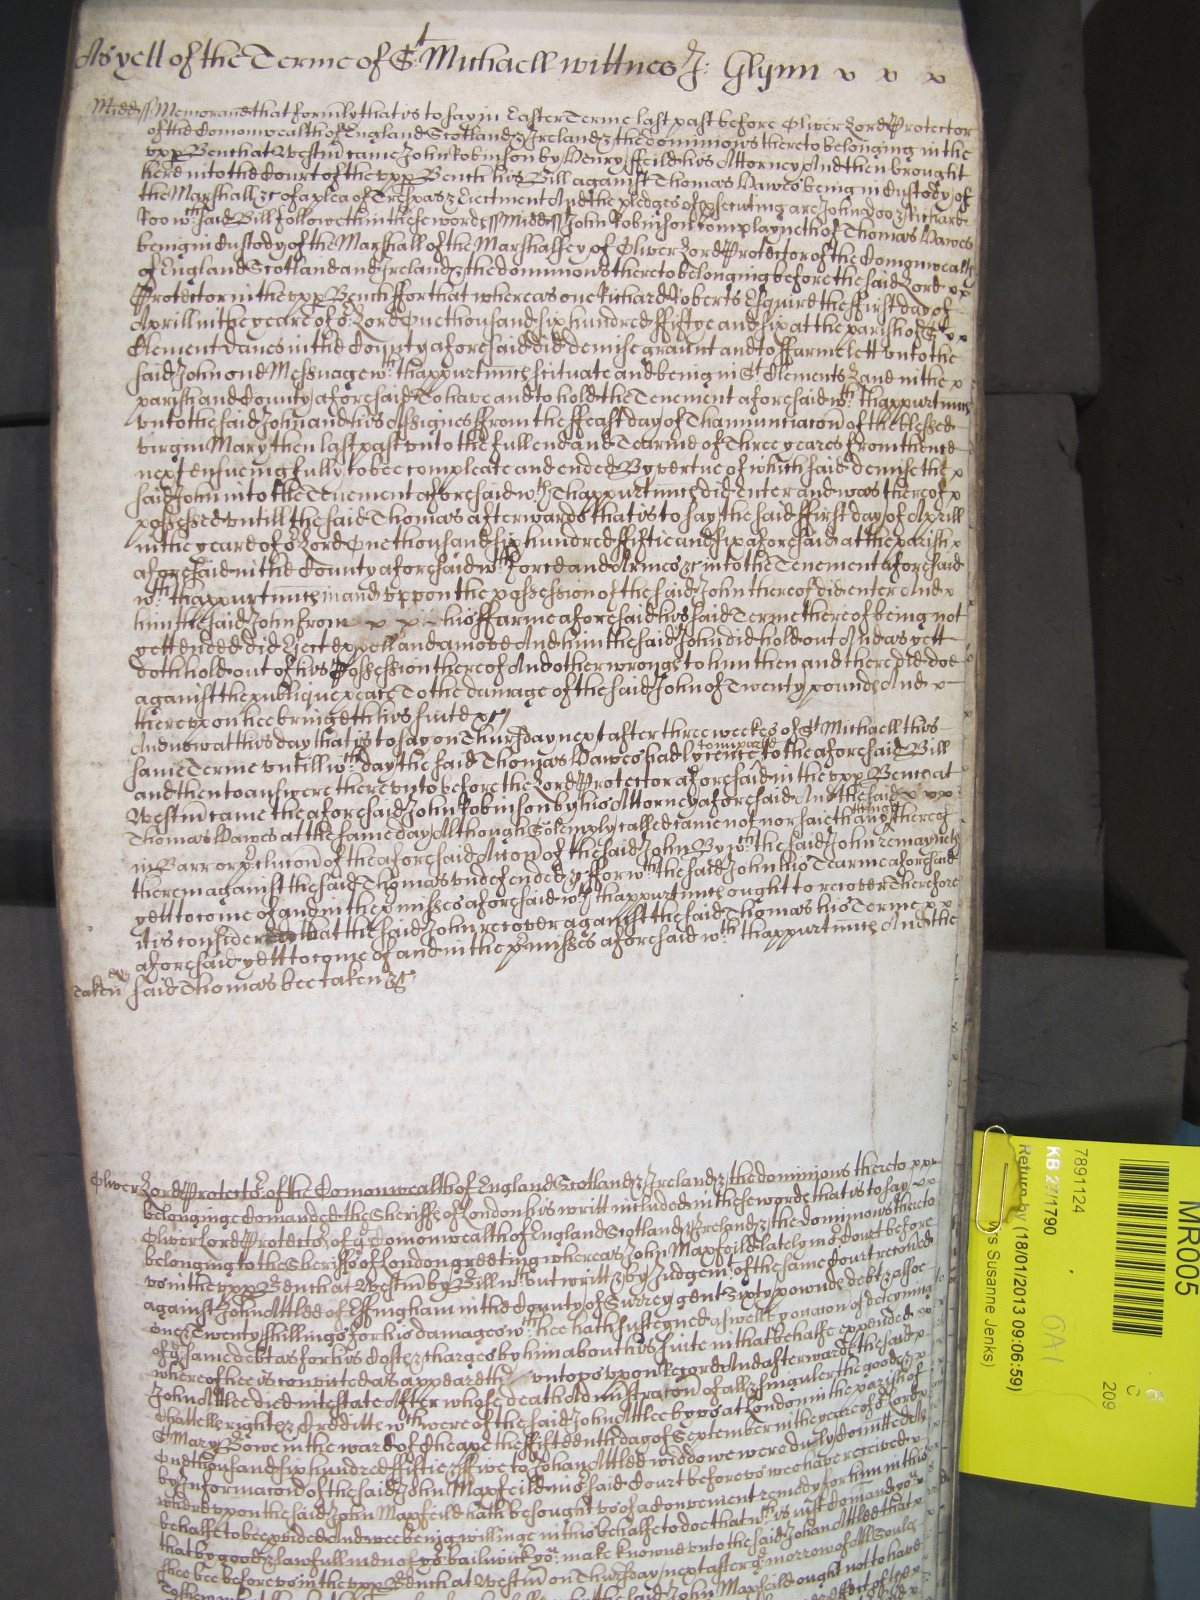 As yett of the Terme of St Michaell wittnes J: Glynn x x x
Midd ss Memorand that formly that is to say in Easter Terme last past before Oliver Lord Protector
of the Comonwealth of England Scotland & Ireland & the dominions thereto belonging in the
upp Bench at Westm came John Robinson by Henry ffeild his Attorney And then brought
here into the Court of the upp Bench his Bill against Thomas Dawes being in Custody of
the Marshall &c of a plea of Trespas & Ejectment And the pledges of psecuting are John Doo & Richard
Roo wch said Bill followeth in these wordes ss Midd ss John Robinson Complayneth of Thomas Dawes
being in Custody of the Marshall of the Marshalsey of Oliver Lord Protector of the Comonwealth
of England Scotland and Ireland & the dominions thereto belonging before the said Lord x x
Protector in the upp Bench ffor that whereas one Richard Roberts Esquire the ffirst day of
Aprill in the yeare of or Lord One thousand six hundred ffiftye and six at the parish of St x x
Clement Danes in the County aforesaid did demise graunt and to ffarme lett unto the
said John one Messuage wth thappurtnncs scituate and being in St Clements Lane in the x
parish and County aforesaid To have and to hold the Tenement aforesaid wth thappurtnncs
unto the said John and his Assignes ffrom the ffeast day of Thannunciacon of the blessed
virgin Mary then last past unto the full end and Tearme of Three yeares from thence
next ensueing fully to bee compleate and ended By vertue of which said demise the x
said John into the Tenement aforesaid wth Thappurtnncs did Enter and was thereof x
possessed untill the said Thomas afterwards that is to say the said ffirst day of Aprill
in the yeare of or Lord One thousand six hundred ffiftie and six aforesaid at the parish x
aforesaid in the County aforesaid wth fforce and Armes &c into the Tenement aforesaid
wth thappurtnncs in and uppon the possession of the said John thereof did enter And x
him the said John from x x x his ffarme aforesaid his said Terme thereof being not
yett ended did Eject expell and amove And him the said John did hold out And as yett
doth hold out of his Possession thereof And other wronges to him then and there did doe
against the publique peace To the damage of the said John of Twenty pounds And x
thereuppon hee bringeth his suite &c
And now at this day that is to say on Thursday next after three weekes of St Michaell this
same Terme untill wch day the said Thomas Dawes had lycence to imparle to the aforesaid Bill
and then to answere thereunto before the Lord Protector aforesaid in the upp Bench at
Westm came the aforesaid John Robinson by his Attorney aforesaid And the said x x x
Thomas Dawes at the same day Although Solemply called came not nor saieth any thing thereof
in Barr or pclucon of the aforesaid Accon of the said John By wch the said John remayneth
therein against the said Thomas undefended & fforwch the said John his Tearme aforesaid
yett to come of and in the pmisses aforesaid wth thappurtnncs ought to recover Therefore
it is considered that the said John recover against the said Thomas his Terme x x
aforesaid yett to come of and in the pmisses aforesaid wth thappurtnncs And the
Taken said Thomas bee taken &c
Oliver Lord Protector of the Comonwealth of England Scotland & Ireland & the dominions thereto x x x
belonginge Comanded the Sheriffe of London his writt included in these wordes that is to say x x
Oliver Lord Protector of ye Comonwealth of England Scotland & Ireland & the dominions thereto
belonging to the Sheriffs of London greeting whereas John Mapfeild lately in or Court before
us in the upp Bench at Westm by Bill wthout writt & by Judgemt of the same Court recoved
against John Attlee of Effingham in the County of Surrey gent Sixty pownds debt & alsoe
one & Twenty shillings for his damages wch hee hath susteyned aswell by occasion of deteyning
of ye same debt as for his Costes & charges by him about his suite in that behalfe expended x x
whereof hee is convicted as appeareth unto us uppon Record And afterwards the said x
John Attlee died intestate After whose death Administracon of all & singuler the goods & x
Chattells rightes & Creditts wch were of the said John Attlee by us at London in the parish of
St Mary Bowe in the ward of Cheape the ffifteenth day of September in the yeare of or Lord
One thousand six hundred ffiftie & ffive to Johan Attlee widdowe were duly Comitted As
by Informacon of the said John Mapfeild in or said Court before us wee have received x
whereuppon the said John Mapfeild hath besought us of a convenient remedy for him in this
behalfe to bee pvided And wee being willinge in this behalfe to doe that wch is just Comand you
that by good & lawfull men of yor bailiwick you make knowne unto the said Johan Attlee that x
shee bee before us in the upp Bench at Westm on Thursday next after ye morrow of All Soules
MR005
7891124
KB 27/1790
Return by (18/01/2013 09:06:59)
Susanne Jenks)
209